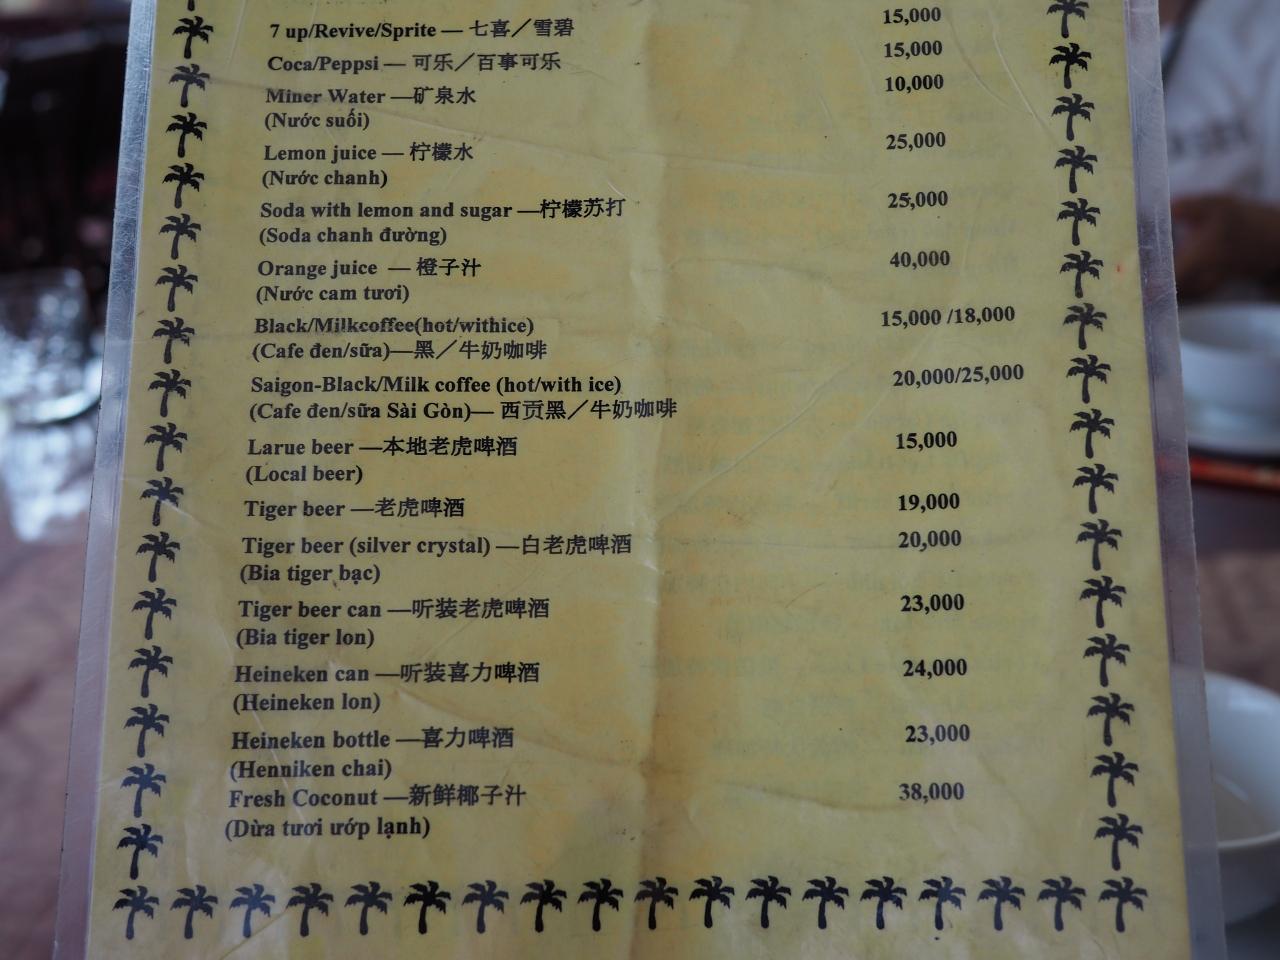 7 up/Revive/Sprite — 七喜／雪碧 15,000
Coca/Peppsi — 可乐／百事可乐 15,000
Miner Water —矿泉水 10,000
(Nước suối)
Lemon juice — 柠檬水 25,000
(Nước chanh)
Soda with lemon and sugar —柠檬苏打 25,000
(Soda chanh đường)
Orange juice — 橙子汁 40,000
(Nước cam tươi)
Black/Milkcoffee(hot/withice) 15,000 /18,000
(Cafe đen/sữa)—黑／牛奶咖啡
Saigon-Black/Milk coffee (hot/with ice) 20,000/25,000
(Cafe đen/sữa Sài Gòn)— 西贡黑／牛奶咖啡
Larue beer —本地老虎啤酒 15,000
(Local beer)
Tiger beer —老虎啤酒 19,000
Tiger beer (silver crystal) —白老虎啤酒 20,000
(Bia tiger bạc)
Tiger beer can —听装老虎啤酒 23,000
(Bia tiger lon)
Heineken can —听装喜力啤酒 24,000
(Heineken lon)
Heineken bottle —喜力啤酒 23,000
(Henniken chai)
Fresh Coconut —新鲜椰子汁 38,000
(Dừa tươi ướp lạnh)